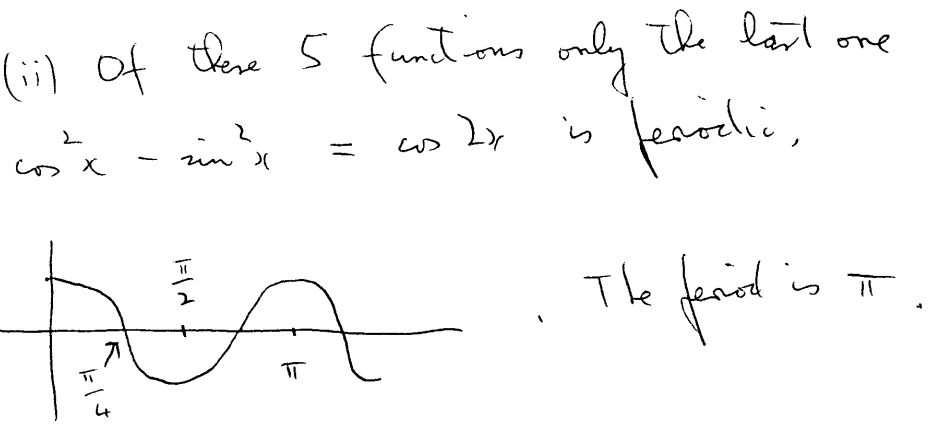 (ii) Of these 5 functions only the last one
cos²x - sin²x = cos 2x is periodic,
π/2
. The period is π.
π
π/4